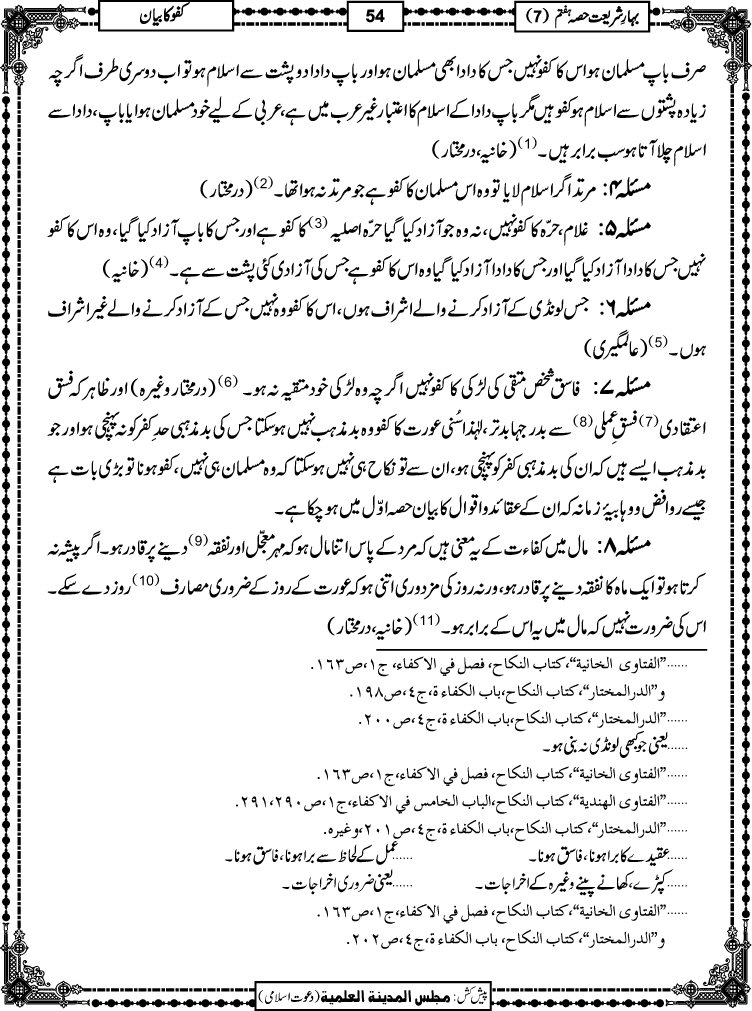 بہارِ شریعت حصہ ہفتم (7)
54
کفو کا بیان
صرف باپ مسلمان ہو اس کا کفو نہیں جس کا دادا بھی مسلمان ہو اور باپ دادا دو پشت سے اسلام ہو تو اب دوسری طرف اگرچہ
زیادہ پشتوں سے اسلام ہو کفو ہیں مگر باپ دادا کے اسلام کا اعتبار غیر عرب میں ہے، عربی کے لیے خود مسلمان ہوا یا باپ، دادا سے
اسلام چلا آتا ہو سب برابر ہیں۔ (1) (خانیہ، درمختار)
مسئلہ ۴: مرتد اگر اسلام لایا تو وہ اس مسلمان کا کفو ہے جو مرتد نہ ہوا تھا۔ (2) (درمختار)
مسئلہ ۵: غلام، حرّہ کا کفو نہیں، نہ وہ جو آزاد کیا گیا حرّہ اصلیہ (3) کا کفو ہے اور جس کا باپ آزاد کیا گیا، وہ اس کا کفو
نہیں جس کا دادا آزاد کیا گیا اور جس کا دادا آزاد کیا گیا وہ اس کا کفو ہے جس کی آزادی کئی پشت سے ہے۔ (4) (خانیہ)
مسئلہ ۶: جس لونڈی کے آزاد کرنے والے اشراف ہوں، اس کا کفو وہ نہیں جس کے آزاد کرنے والے غیر اشراف
ہوں۔ (5) (عالمگیری)
مسئلہ ۷: فاسق شخص متقی کی لڑکی کا کفو نہیں اگرچہ وہ لڑکی خود متقیہ نہ ہو۔ (6) (درمختار وغیرہ) اور ظاہر کہ فسق
اعتقادی (7) فسقِ عملی (8) سے بدرجہا بدتر، لہٰذا سُنی عورت کا کفو وہ بدمذہب نہیں ہو سکتا جس کی بدمذہبی حدِ کفر کو نہ پہنچی ہو اور جو
بدمذہب ایسے ہیں کہ ان کی بدمذہبی کفر کو پہنچی ہو، ان سے تو نکاح ہی نہیں ہو سکتا کہ وہ مسلمان ہی نہیں، کفو ہونا تو بڑی بات ہے
جیسے روافض و وہابیۂ زمانہ کہ ان کے عقائد و اقوال کا بیان حصہ اوّل میں ہو چکا ہے۔
مسئلہ ۸: مال میں کفاءت کے یہ معنی ہیں کہ مرد کے پاس اتنا مال ہو کہ مہرِ معجّل اور نفقہ (9) دینے پر قادر ہو۔ اگر پیشہ نہ
کرتا ہو تو ایک ماہ کا نفقہ دینے پر قادر ہو، ورنہ روز کی مزدوری اتنی ہو کہ عورت کے روز کے ضروری مصارف (10) روز دے سکے۔
اس کی ضرورت نہیں کہ مال میں یہ اس کے برابر ہو۔ (11) (خانیہ، درمختار)
......”الفتاوی الخانیة“، کتاب النکاح، فصل في الاکفاء، ج۱، ص۱۶۳.
و”الدرالمختار“، کتاب النکاح، باب الکفاءة، ج٤، ص۱۹۸.
......”الدرالمختار“، کتاب النکاح، باب الکفاءة، ج٤، ص۲۰۰.
......یعنی جو کبھی لونڈی نہ بنی ہو۔
......”الفتاوی الخانیة“، کتاب النکاح، فصل في الاکفاء، ج۱، ص۱۶۳.
......”الفتاوی الهندیة“، کتاب النکاح، الباب الخامس في الاکفاء، ج۱، ص۲۹۰، ۲۹۱.
......”الدرالمختار“، کتاب النکاح، باب الکفاءة، ج٤، ص۲۰۱، وغیره.
......عقیدے کا برا ہونا، فاسق ہونا۔ ......عمل کے لحاظ سے برا ہونا، فاسق ہونا۔
......کپڑے، کھانے پینے وغیرہ کے اخراجات۔ ......یعنی ضروری اخراجات۔
......”الفتاوی الخانیة“، کتاب النکاح، فصل في الاکفاء، ج۱، ص۱۶۳.
و”الدرالمختار“، کتاب النکاح، باب الکفاءة، ج٤، ص۲۰۲.
پیش کش: مجلس المدینة العلمیة (دعوت اسلامی)